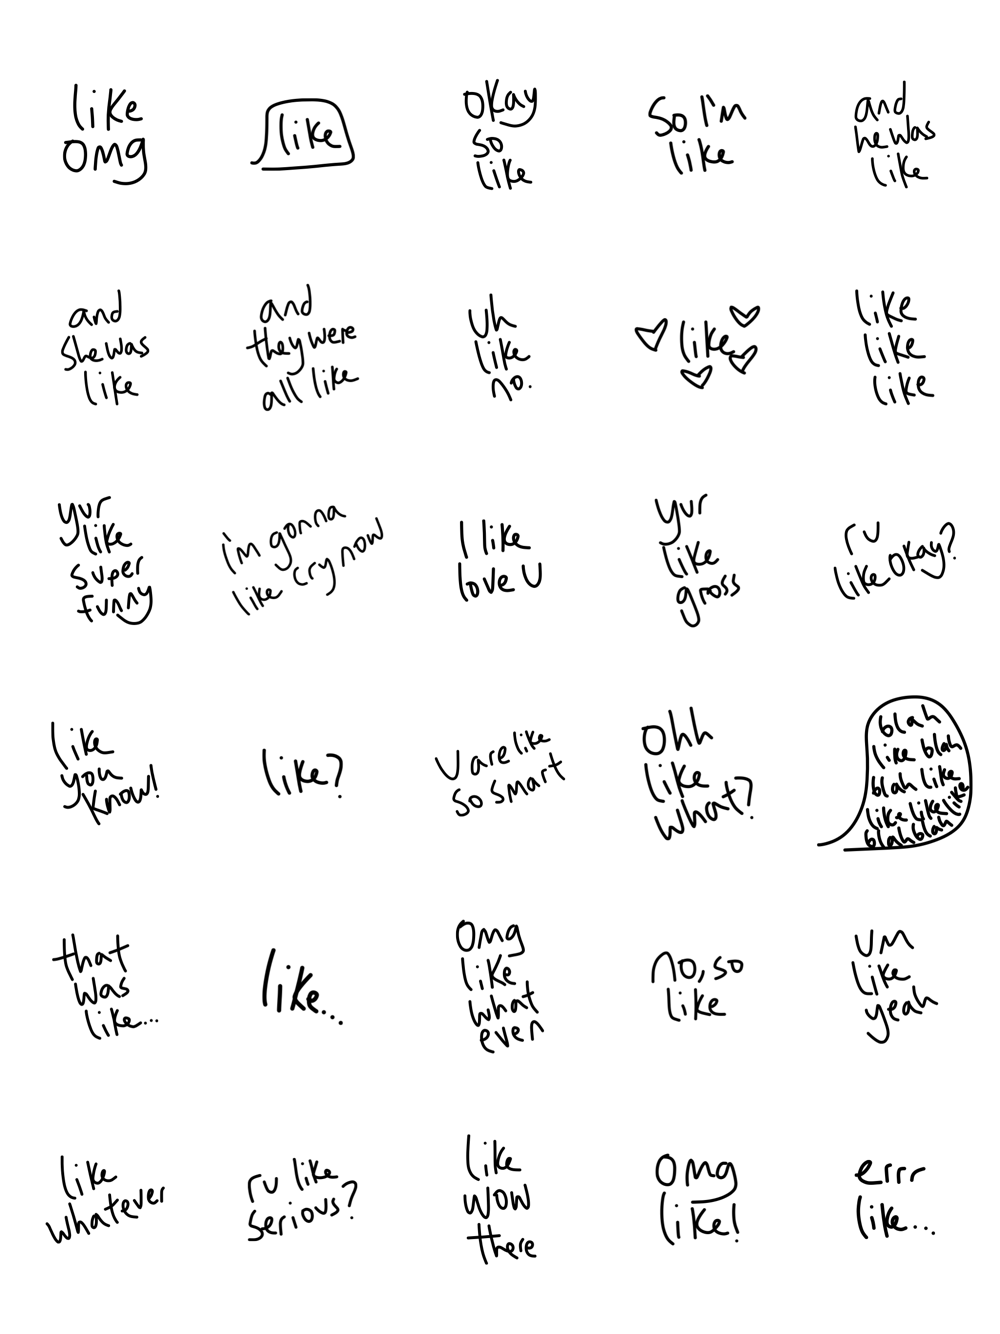 like
omg
like
okay
so
like
So I'm
like
and
he was
like
and
she was
like
and
they were
all like
uh
like
no.
like
like
like
like
yur
like
super
funny
i'm gonna
like cry now
I like
love U
yur
like
gross
r u
like okay?
like
you
know!
like?
U are like
so smart
Ohh
like
what?
blah
like blah
blah like
like like like
blah blah
that
was
like...
like...
Omg
like
what
even
no, so
like
um
like
yeah
like
whatever
ru like
serious?
like
wow
there
Omg
like!
errr
like...